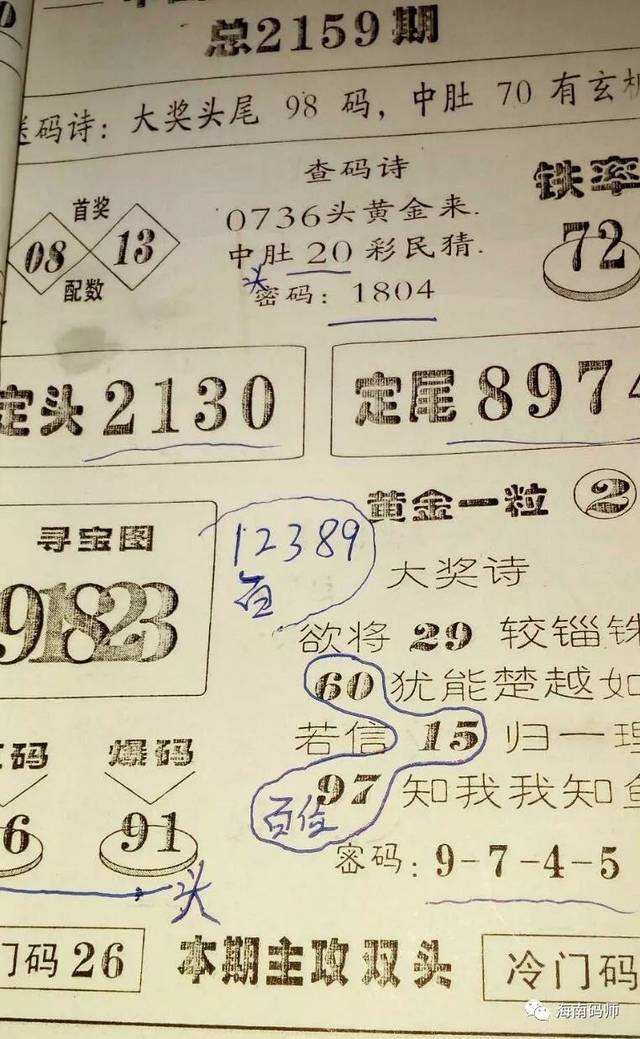 总2159期
送码诗：大奖头尾 98 码，中肚 70 有玄机
查码诗
铁率
首奖
08 13
配数
0736头黄金来.
中肚 20 彩民猜.
头
密码：1804
72
定头 2130
定尾 8974
黄金一粒 2
寻宝图
91823
12389
百
大奖诗
欲将 29 较锱铢
60 犹能楚越如
若信 15 归一理
97 知我我知鱼
百位
码 爆码
6 91
头
密码：9-7-4-5
门码 26
本期主攻双头
冷门码
海南码师